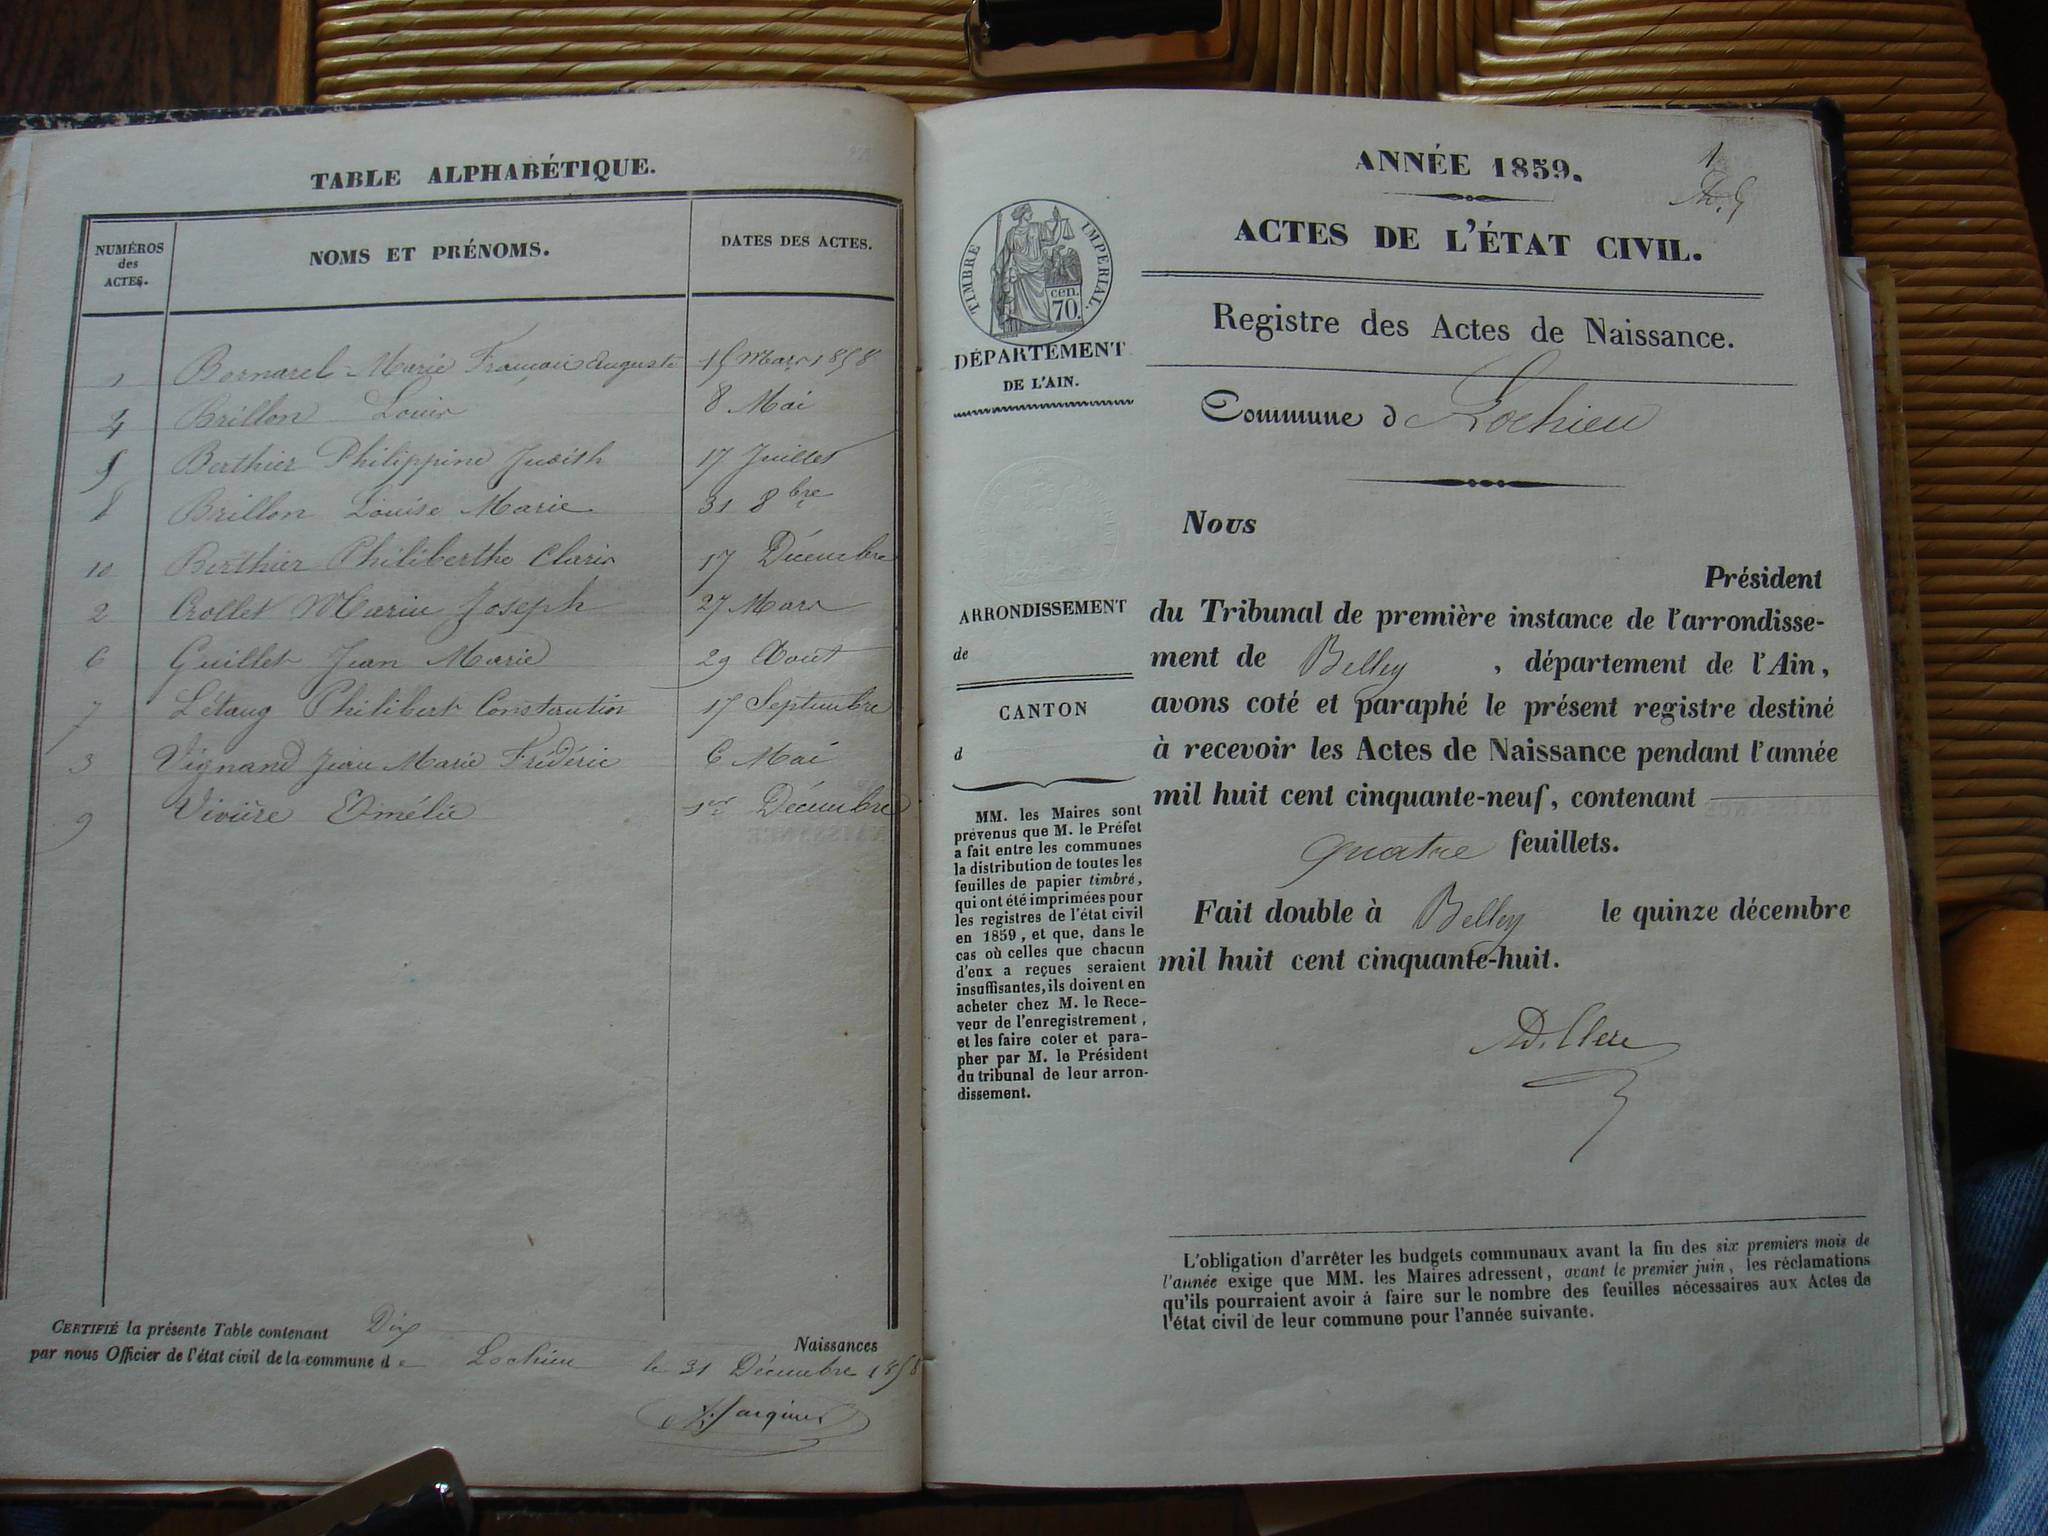 TABLE ALPHABÉTIQUE.
NUMÉROS des ACTES.
NOMS ET PRÉNOMS.
DATES DES ACTES.
1 Bernarel Marie François Auguste 15 Mars 1858
4 Brillon Louis 8 Mai
5 Berthier Philippine Judith 17 Juillet
8 Brillon Louise Marie 31 8bre
10 Berthier Philiberthe Claris 17 Décembre
2 Crollet Marie Joseph 27 Mars
6 Guillet Jean Marie 29 Aout
7 Létang Philibert 17 Septembre
3 Vignand Jean Marie Frédéric 6 Mai
9 Vivière Amélie 1er Décembre
CERTIFIÉ la présente Table contenant Dix Naissances
par nous Officier de l'état civil de la commune de Lochieu le 31 Décembre 1858
ANNÉE 1859.
1
ACTES DE L'ÉTAT CIVIL.
TIMBRE IMPERIAL.
cen.
70.
Registre des Actes de Naissance.
DÉPARTEMENT
DE L'AIN.
Commune d Lochieu
Nous
Président
du Tribunal de première instance de l'arrondisse-
ment de Belley, département de l'Ain,
avons coté et paraphé le présent registre destiné
à recevoir les Actes de Naissance pendant l'année
mil huit cent cinquante-neuf, contenant
quatre feuillets.
Fait double à Belley le quinze décembre
mil huit cent cinquante-huit.
Ad. Clerc
ARRONDISSEMENT
de
CANTON
d
MM. les Maires sont
prévenus que M. le Préfet
a fait entre les communes
la distribution de toutes les
feuilles de papier timbré,
qui ont été imprimées pour
les registres de l'état civil
en 1859, et que, dans le
cas où celles que chacun
d'eux a reçues seraient
insuffisantes, ils doivent en
acheter chez M. le Rece-
veur de l'enregistrement,
et les faire coter et para-
pher par M. le Président
du tribunal de leur arron-
dissement.
L'obligation d'arrêter les budgets communaux avant la fin des six premiers mois de
l'année exige que MM. les Maires adressent, avant le premier juin, les réclamations
qu'ils pourraient avoir à faire sur le nombre des feuilles nécessaires aux Actes de
l'état civil de leur commune pour l'année suivante.